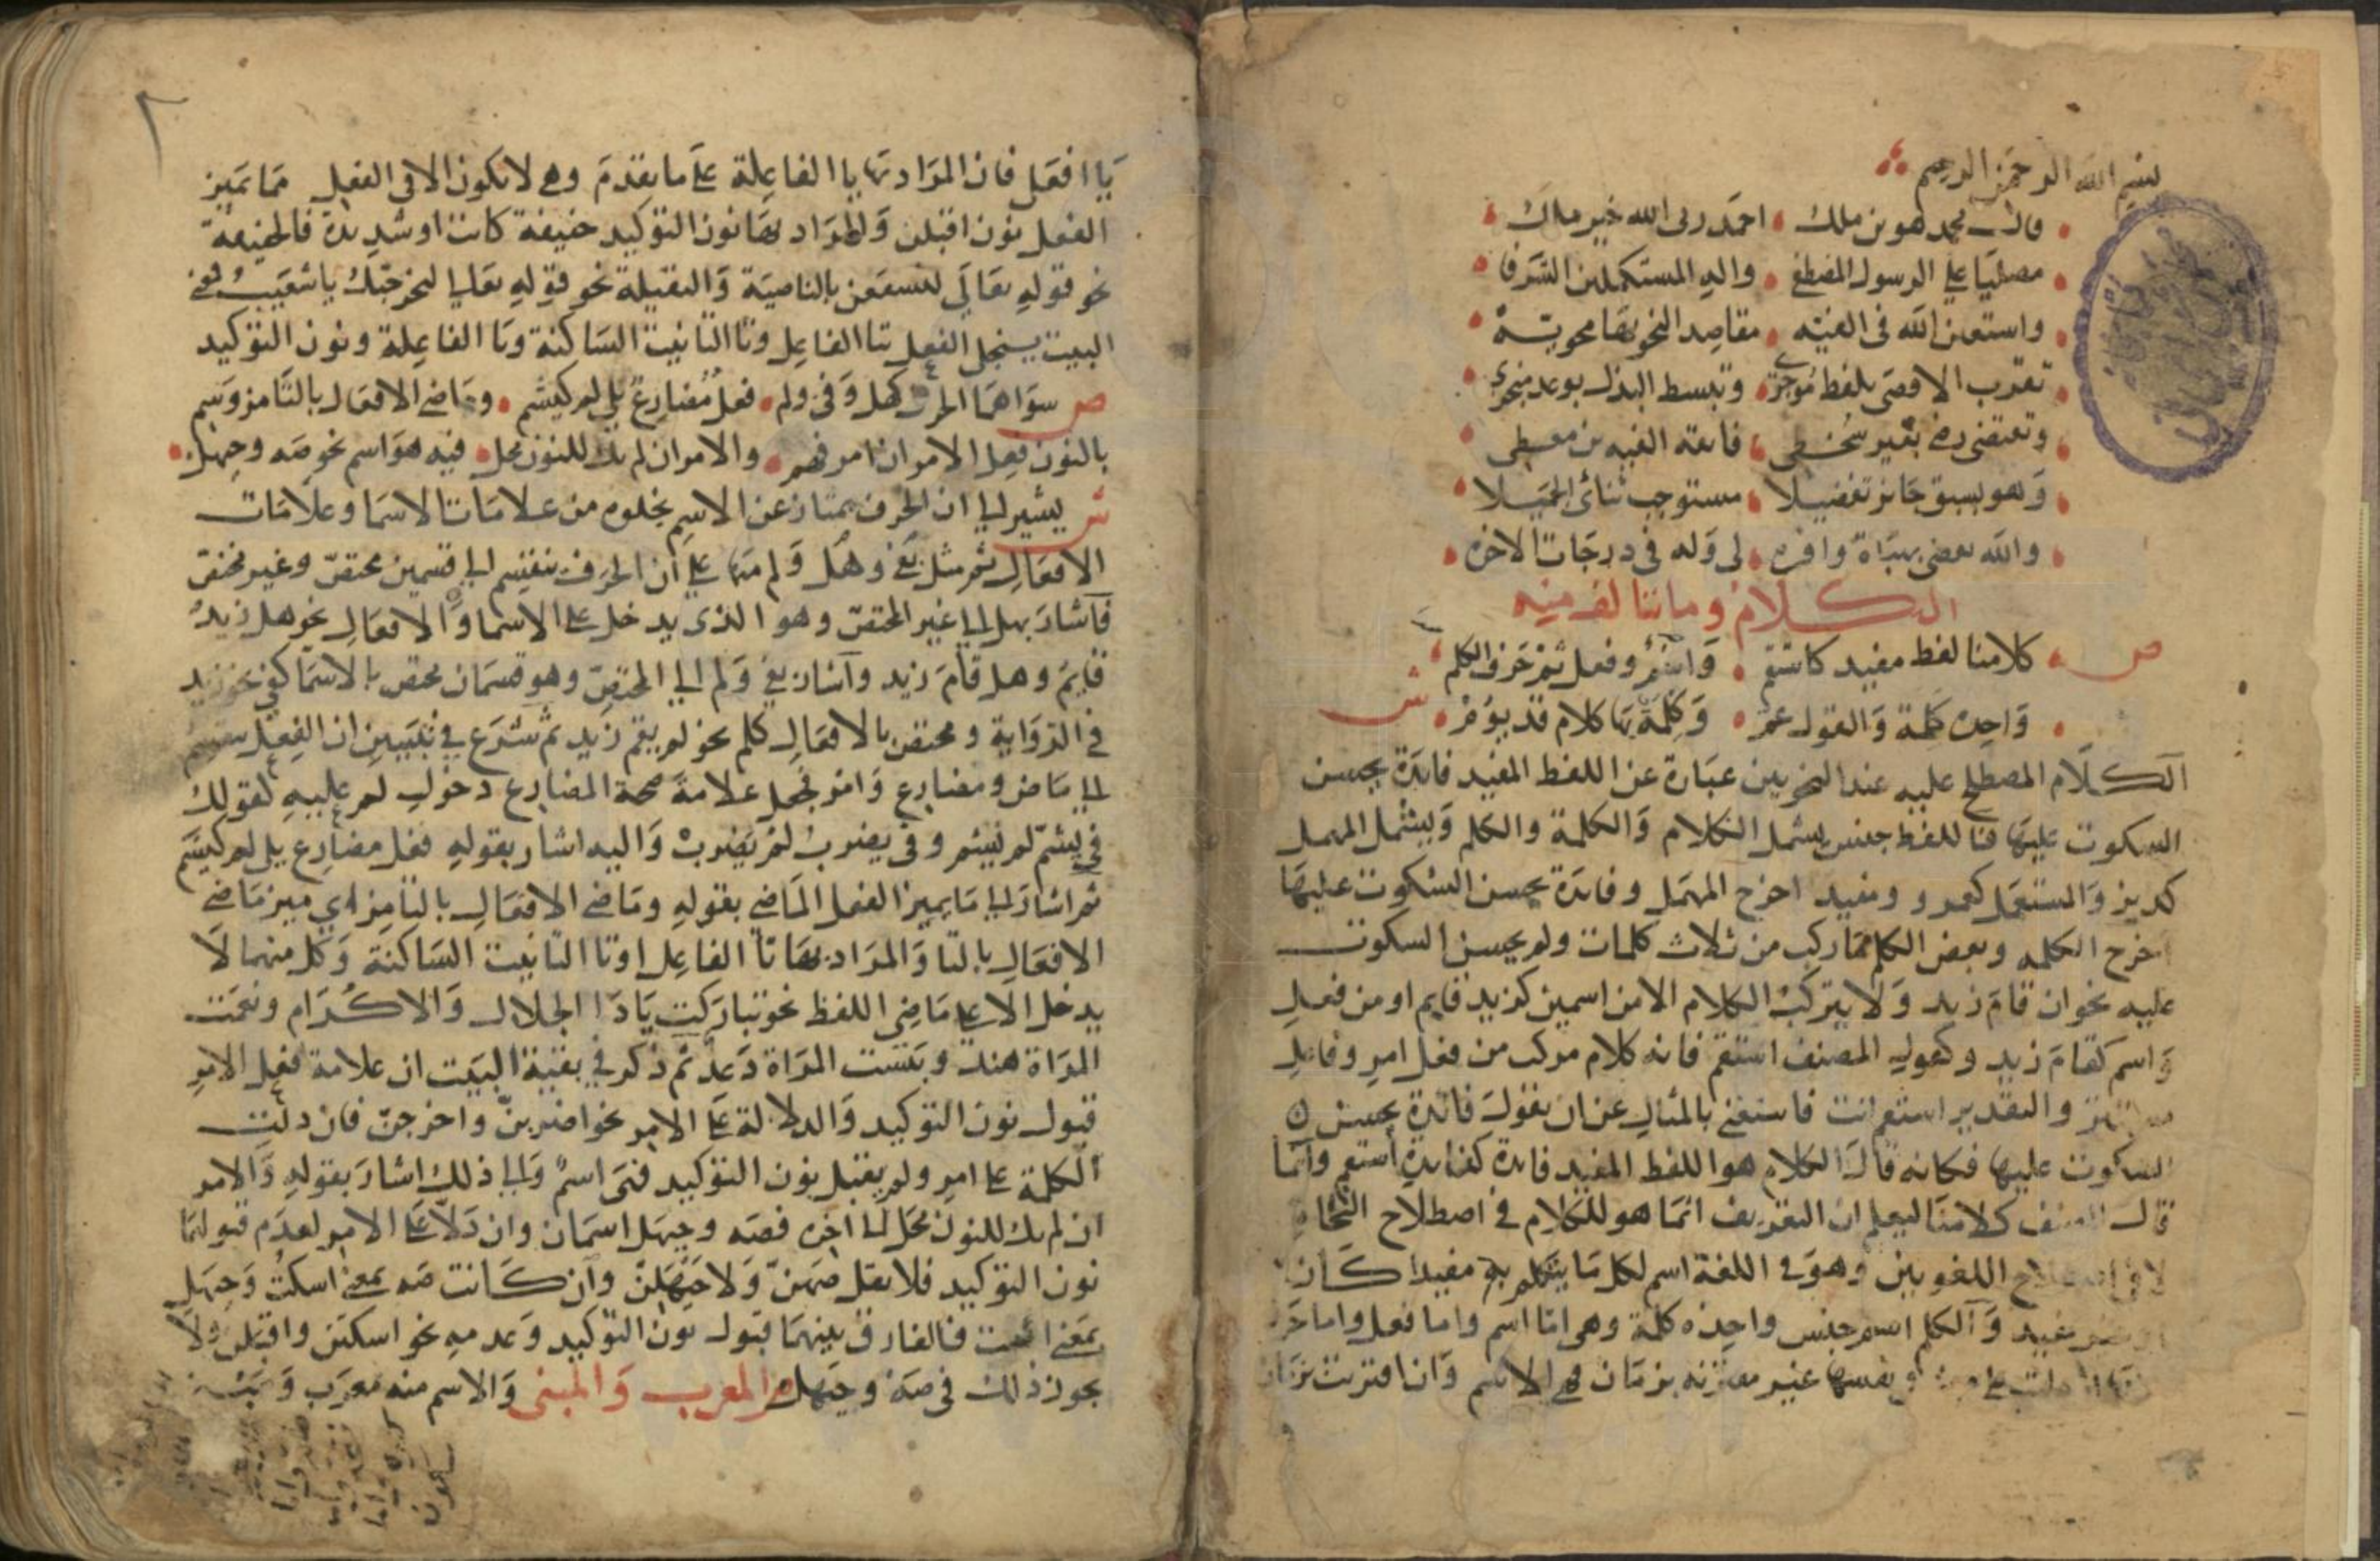 بسم الله الرحمن الرحيم
قال محمد هو بن ملك احمد ربى الله خير مالك
مصليا على الرسول المصطفى واله المستكملين الشرفا
واستعين الله فى الفيه مقاصد النحو بها محويه
تقرب الاقصى بلفظ موجز وتبسط البذل بوعد منجز
وتقتضى رضى بغير سخط فايقة الفيه بن معطى
وهو بسبق جايز تفضيلا مستوجب ثنائى الجميلا
والله يقضى بهبات وافره لى وله فى درجات الاخره
الكلام وما يتالف منه
ص كلامنا لفظ مفيد كاستقم واسم وفعل ثم حرف الكلم
واحده كلمة والقول عم وكلمة بها كلام قد يؤم ش
الكلام المصطلح عليه عند النحويين عبارة عن اللفظ المفيد فايدة يحسن
السكوت عليها فاللفظ جنس يشمل الكلام والكلمة والكلم ويشمل المهمل
كديز والمستعمل كعمرو ومفيد اخرج المهمل وفايدة يحسن السكوت عليها
اخرج الكلمه وبعض الكلم مما ركب من ثلاث كلمات ولم يحسن السكوت
عليه نحو ان قام زيد ولا يتركب الكلام الا من اسمين كزيد قايم او من فعل
واسم كقام زيد وكقول المصنف استقم فانه كلام مركب من فعل امر وفاعل
والتقدير استقم انت فاستغنى بالمثال عن ان يقول فايدة يحسن
السكوت عليها فكانه قال الكلام هو اللفظ المفيد فايدة كفايدة استقم وانما
قال المصنف كلامنا ليعلم ان التعريف انما هو للكلام فى اصطلاح النحاة
لا فى اصطلاح اللغويين وهو فى اللغة اسم لكل ما يتكلم به مفيدا كان
او غير مفيد والكلم اسم جنس واحده كلمة وهى اما اسم واما فعل واما حرف
نفسها غير مقترنه بزمان فهى الاسم وان اقترنت بزمان
يا افعل فان المراد بها يا الفاعلة على ما تقدم وهى لا تكون الا فى الفعل مما يميز
الفعل نون اقبلن والمراد بها نون التوكيد خفيفة كانت او شديدة فالخفيفة
نحو قوله تعالى لنسفعن بالناصية والثقيلة نحو قوله تعالى لنخرجنك يا شعيب فمعنى
البيت ينجلى الفعل بتا الفاعل وتا التانيث الساكنة ويا الفاعلة ونون التوكيد
ص سواهما الحرف كهل وفى ولم فعل مضارع يلى لم كيشم وماضى الافعال بالتا مز وسم
بالنون فعل الامر ان امر فهم والامر ان لم يك للنون محل فيه هو اسم نحو صه وحيهل
ش يشير الى ان الحرف يمتاز عن الاسم بخلوه من علامات الاسما وعلامات
الافعال ثم مثل بفى وهل ولم منبها على ان الحرف ينقسم الى قسمين مختص وغير مختص
فاشار بهل الى غير المختص وهو الذى يدخل على الاسما والافعال نحو هل زيد
قايم وهل قام زيد واشار بفى ولم الى المختص وهو قسمان مختص بالاسما كفى نحو زيد
فى الدواية ومختص بالافعال كلم نحو لم يقم زيد ثم شرع فى تبيين ان الفعل ينقسم
الى ماض ومضارع وامر فجعل علامة صحة المضارع دخول لم عليه كقولك
فى يشم لم يشم وفى يضرب لم يضرب واليه اشار بقوله فعل مضارع يلى لم كيشم
ثم اشار الى ما يميز الفعل الماضى بقوله وماضى الافعال بالتا مز اى ميز ماضى
الافعال بالتا والمراد بها تا الفاعل او تا التانيث الساكنة وكل منهما لا
يدخل الا على ماضى اللفظ نحو تباركت يا ذا الجلال والاكرام ونعمت
المراة هند وبيست المراة دعد ثم ذكر فى بقية البيت ان علامة فعل الامر
قبول نون التوكيد والدلالة على الامر نحو اضربن واخرجن فان دلت
الكلمة على امر ولم يقبل نون التوكيد فهى اسم والى ذلك اشار بقوله والامر
ان لم يك للنون محل الى اخره فصه وحيهل اسمان وان دلا على الامر لعدم قبولهما
نون التوكيد فلا يقل صهن ولا حيهلن وان كانت صه بمعنى اسكت وحيهل
بمعنى اقبل فالفارق بينهما قبول نون التوكيد وعدمه نحو اسكتن واقبلن ولا
يجوز ذلك فى صه وحيهل المعرب والمبنى والاسم منه معرب ومبنى